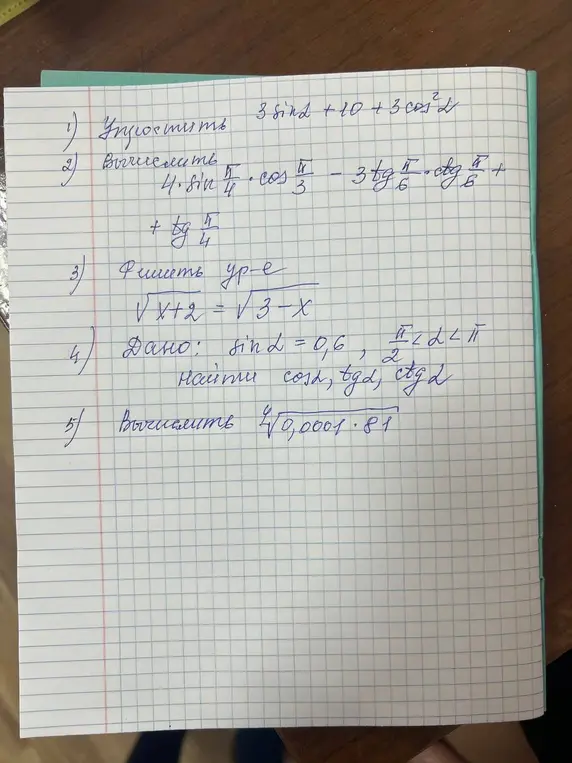 1) Упростить 3 sinα + 10 + 3 cos²α
2) Вычислить
4 · sin π/4 · cos π/3 - 3 tg π/6 · ctg π/6 +
+ tg π/4
3) Решить ур-е
√(x+2) = √(3-x)
4) Дано: sinα = 0,6 , π/2 < α < π
Найти cosα, tgα, ctgα
5) Вычислить ⁴√(0,0001 · 81)